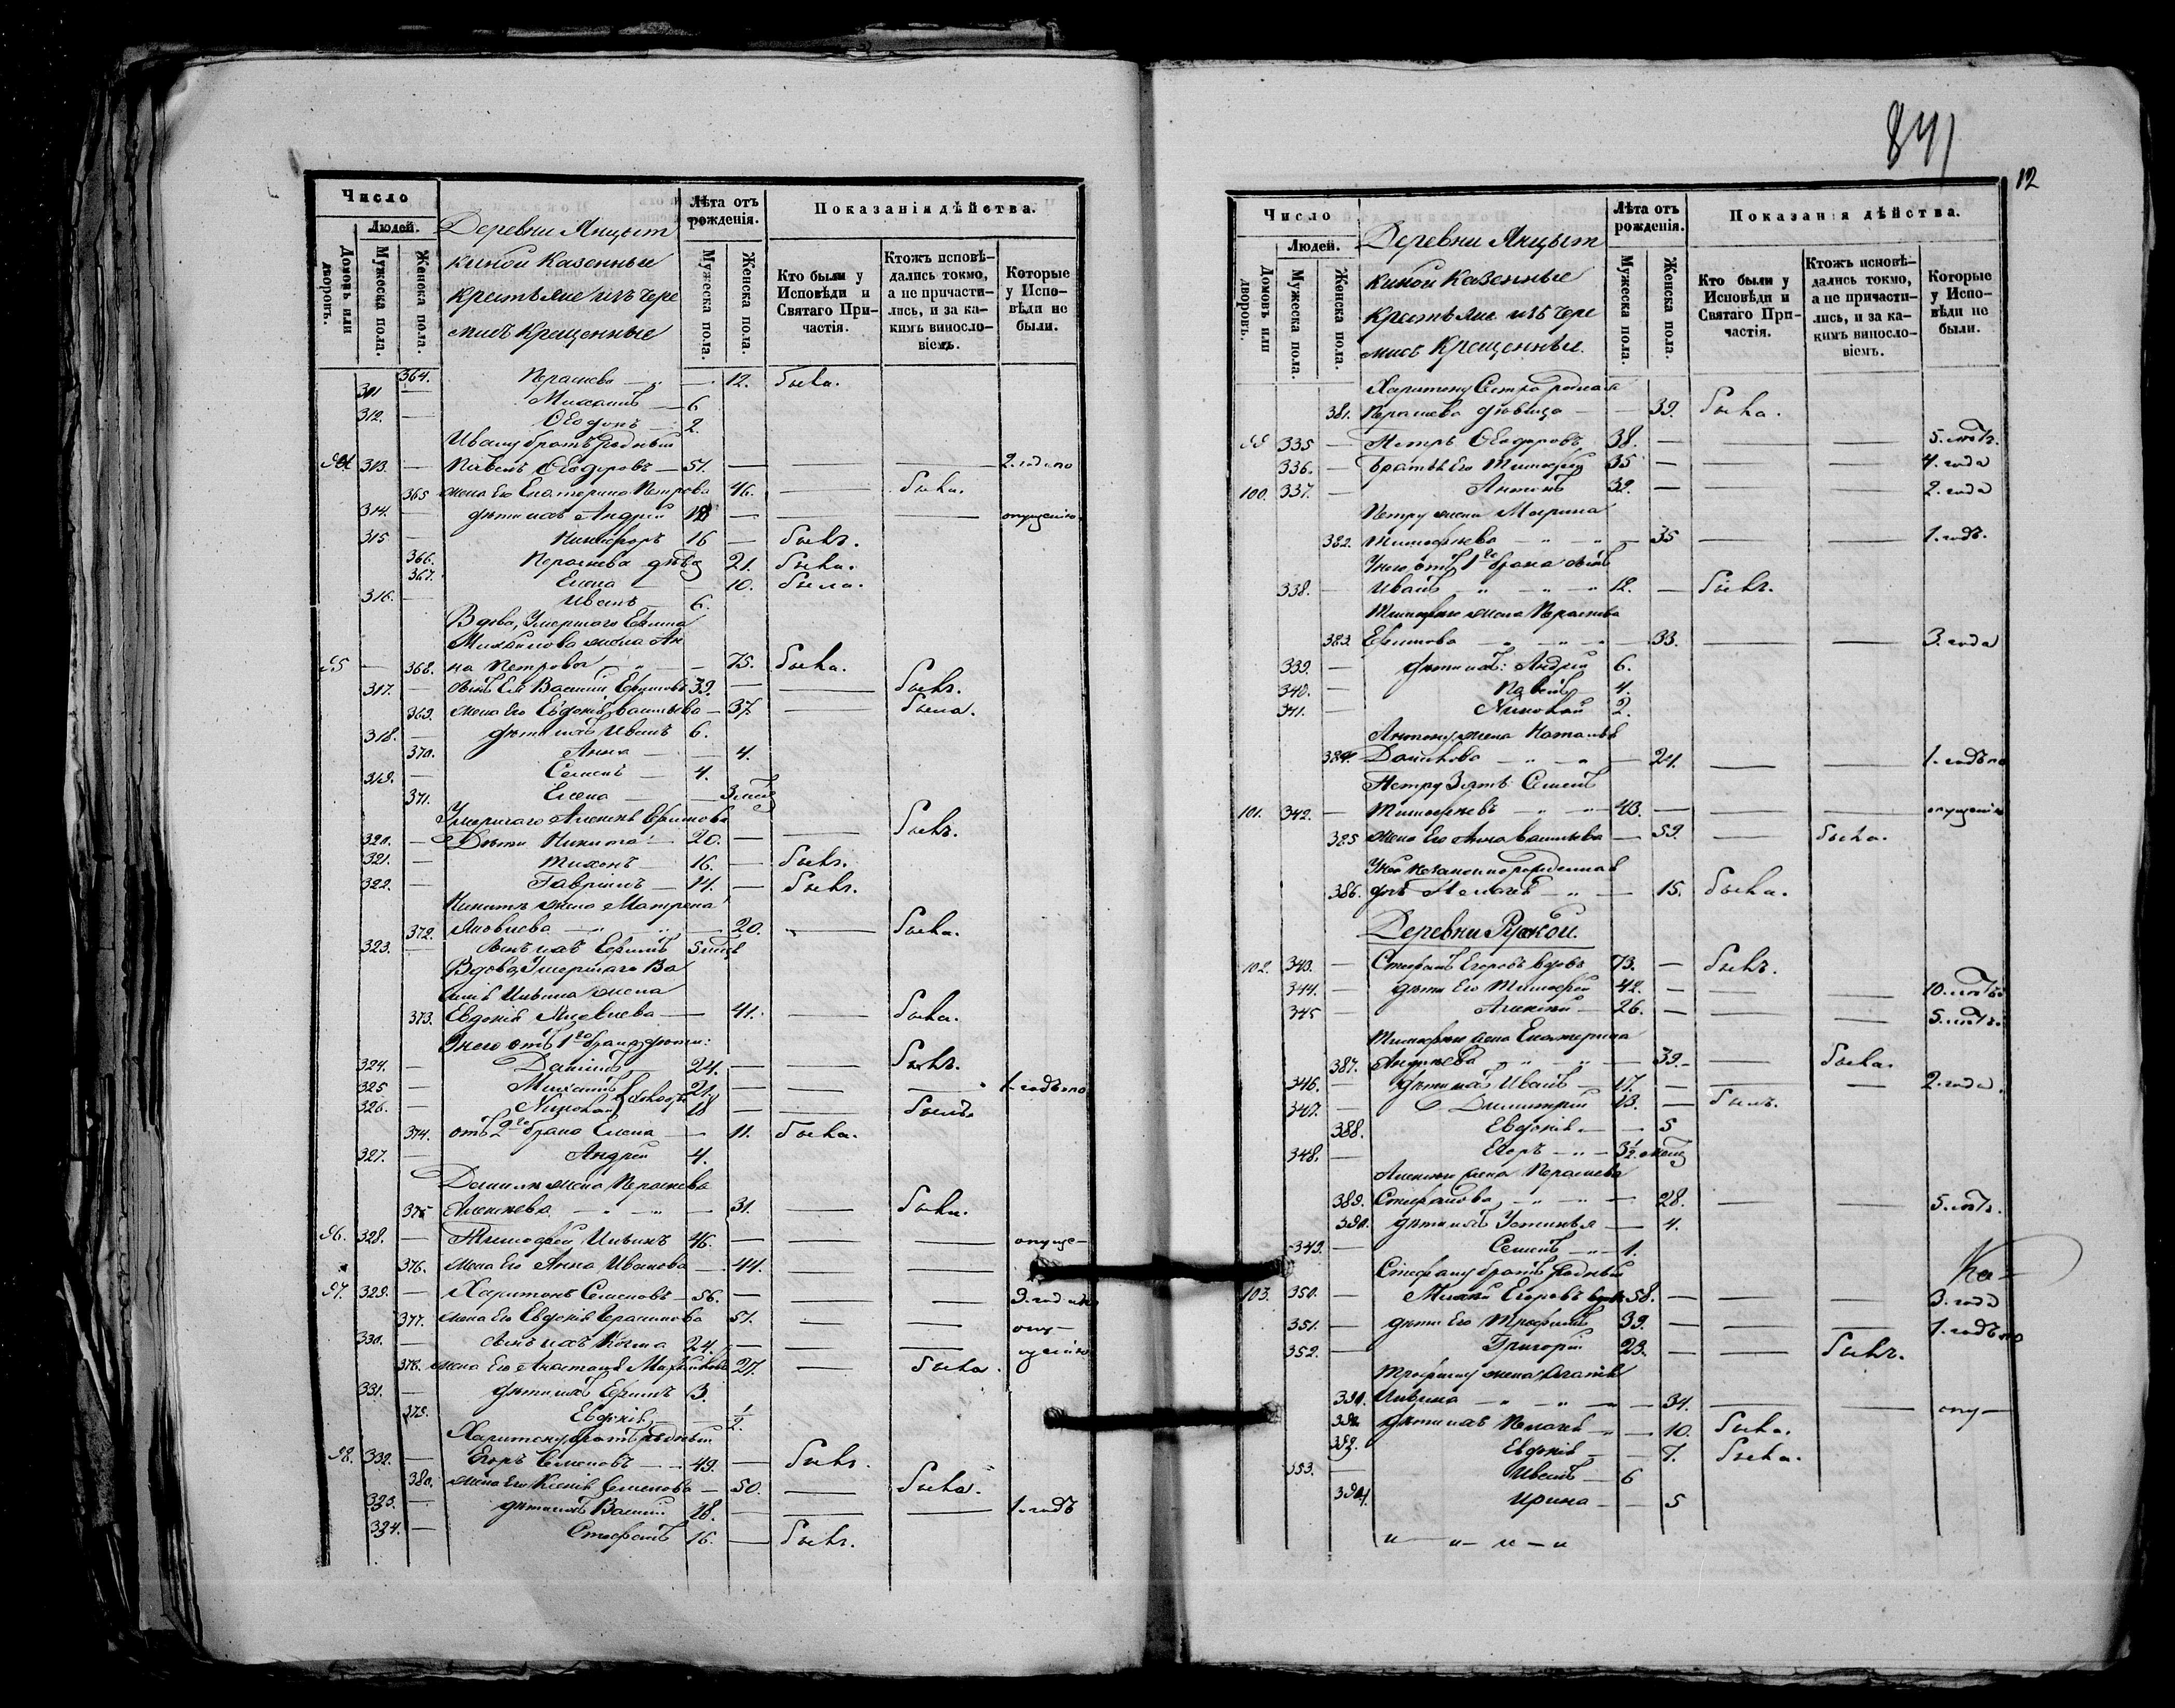 Число
Людей.
Домовъ или дворовъ.
Мужеска пола.
Женска пола.
Деревни Янцыт
киной Казенные
Крестьяне изъ Чере
мисъ Крещенные
Лѣта отъ рожденія.
Мужеска пола.
Женска пола.
Показанія дѣйства.
Кто были у Исповѣди и Святаго При-частія.
Ктожъ исповѣ-дались токмо, а не причасти-лись, и за ка-кимъ виносло-віемъ.
Которые у Испо-вѣди не были.
364. Параскева — 12. была.
311 — Михаилъ — 6
312. — Ѳеодоръ — 2.
Ивану братъ родный
94 313. — Павелъ Ѳеодоровъ — 51. — — — 2. года по
365 жена Его Екатерина Петрова 46. — была.
314. — дѣти ихъ Андрей 18 — — — опущенію
315 — Никифоръ 16 — былъ.
366. Параскева дѣвка 21. была.
367. Елена — 10. была.
316. — Иванъ — 6.
Вдова, Умершаго Ефима
Михайлова жена Ан
95 — 368. на Петрова — 75. была.
317. — сынъ Ея Василій Ефимовъ 39. — — былъ.
369. жена Его Евдокія Васильева — 37. — была.
318. — дѣти ихъ Иванъ 6.
370. Анна — 4.
319. — Семенъ — 4.
371. Елена — 3 мѣсяц
Умершаго Алексѣя Ефимова
320. — Дѣти Никита — 20. — — былъ.
321. — Тихонъ — 16. — былъ.
322. — Гавріилъ — 14. — былъ.
Никитѣ жена Матрена
372. Яковлева — 20. — была.
323. — сынъ ихъ Ефимъ 5 мѣсяц
Вдова, Умершаго Ва
силія Ильина жена
373. Евдокія Яковлева — 41. — была.
У него отъ 1го брака дѣти:
324. — Даніилъ — 24. — — былъ.
325 — Михаилъ 21. — — — 1. годъ по
326. — Николай 18 — — былъ
374. отъ 2го брака Елена — 11. была.
327. — Андрей 4.
Даниилѣ жена Параскева
375 Алексѣева — 31. — была.
96. 328. — Тимофей Ильинъ 46. — — — опуще—
376. жена Его Анна Иванова — 44. — —
97. 329. — Харитонъ Семеновъ — 56. — — 3. года по
377. жена Его Евдокія Герасимова 51. — — опу—
330. — сынъ ихъ Косма 24. — — щенію
378. жена Его Анастасія 27. — была.
331. — дѣти ихъ Ефимъ 3.
379. Евдокія — 1/2.
Харитону братъ родный
98. 332. — Егоръ Семеновъ — 49. — былъ.
380. жена Его Ксенія Семенова — 50. — была.
333. — дѣти ихъ Василій 18. — — — 1. годъ
334. — Стефанъ 16. — былъ.
841
12
Число
Людей.
Домовъ или дворовъ.
Мужеска пола.
Женска пола.
Деревни Янцыт
киной Казенные
Крестьяне изъ Чере
мисъ Крещенные.
Лѣта отъ рожденія.
Мужеска пола.
Женска пола.
Показанія дѣйства.
Кто были у Исповѣди и Святаго При-частія.
Ктожъ исповѣ-дались токмо, а не причасти-лись, и за ка-кимъ виносло-віемъ.
Которые у Испо-вѣди не были.
Харитону Сестра родная
381. Параскева дѣвица — 39. была.
99 335 — Петръ Ѳеодоровъ 38. — — — 5. лѣтъ.
336. — братья Его Тимофей 35 — — — 4. года
100. 337. — Антонъ 32. — — — 2. года
Петру жена Марина
382. Тимофеева — 35 — — 1. годъ.
У него отъ 1го брака сынъ
338. — Иванъ — 12. — былъ.
Тимофею жена Параскева
383. Ефимова — 33. — — 3. года
339. — дѣти ихъ: Андрей 6.
340. — Павелъ — 4.
341. — Николай 2.
Антону жена Наталья
384 Данилова — 24. — — 1. годъ по
Петру Зять Семенъ
101. 342. — Тимофеевъ — 43. — — — опущенію
385 жена Его Анна Васильева — 59. — была.
У нея незаконнорожденная
386. дочь Пелагея — 15. была.
Деревни Русской.
102. 343. — Стефанъ Егоровъ вдовъ 73. — былъ.
344. — дѣти Его Тимофей 42. — — — 10. лѣтъ
345 — Алексѣй — 26. — — — 5. лѣтъ.
Тимофею жена Екатерина
387. Андреева — 39. — была.
346. — дѣти ихъ Иванъ — 17. — — — 2. года.
347. — Димитрій 13. — былъ.
388. Евдокія — 5
348. — Егоръ — 3 1/2. мѣсяц
Алексѣю жена Параскева
389. Стефанова — 28. — — 5. лѣтъ.
390. дѣти ихъ Устинья — 4.
349. — Семенъ — 1.
Стефану братъ родный
103. 350. — Егоровъ вдовъ 58. — — — 3. года
351. — дѣти Его Трофимъ 39. — — — 1. годъ по
352. — Григорій 23. — — былъ.
Трофиму жена
391. Ильина — 34. — — опу—
392 дѣти ихъ Пелагея — 10. была.
393. Евдокія — 7. была.
353. — Иванъ — 6
394. Ирина — 5